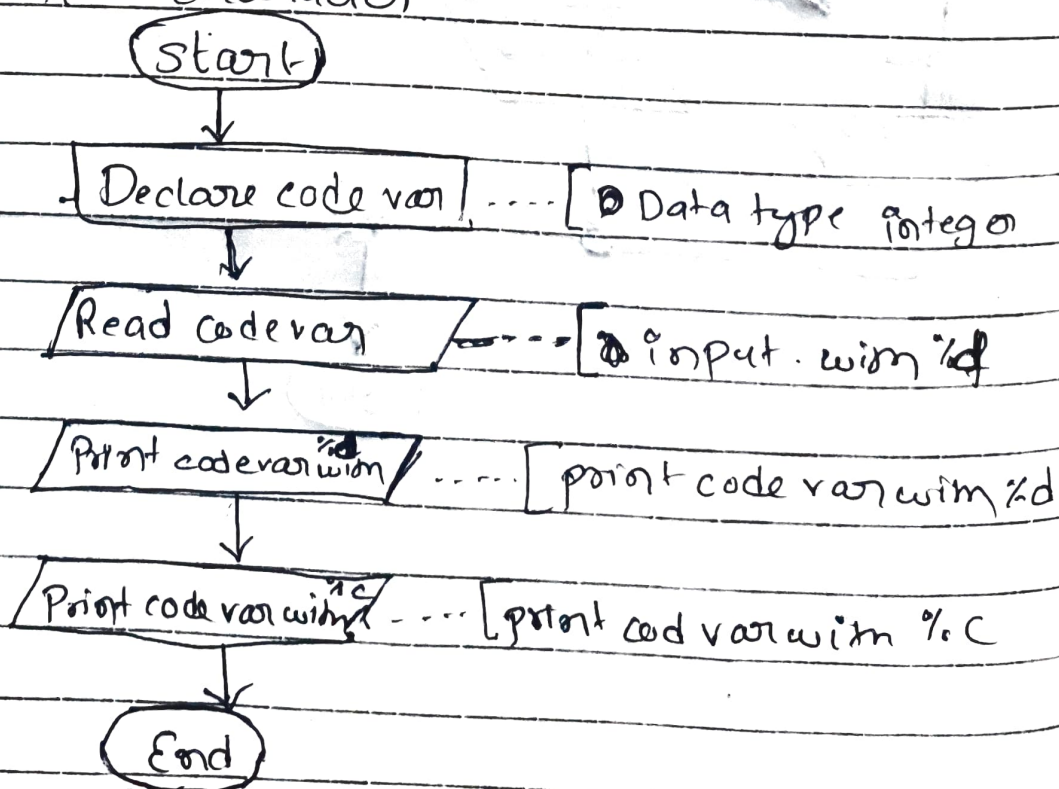 Start
Declare code var
Data type integer
Read code var
input. with %d
Print code var with %d
print code var with %d
Print code var with %c
print cod var with %c
End